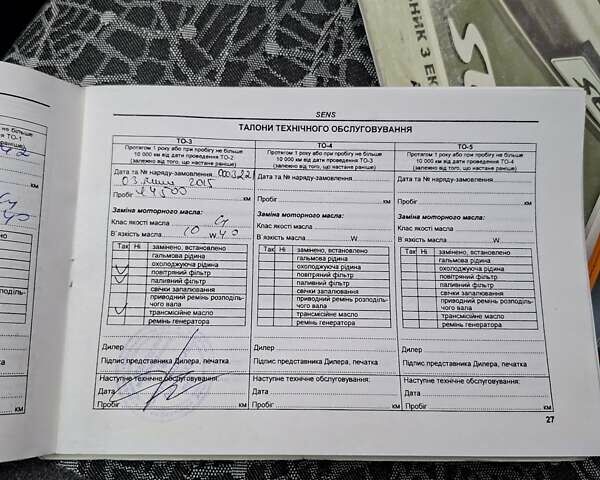 SENS
ТАЛОНИ ТЕХНІЧНОГО ОБСЛУГОВУВАННЯ
ТО-3
Протягом 1 року або при пробігу не більше
10 000 км від дати проведення ТО-2
(залежно від того, що настане раніше)
Дата та № наряду-замовлення 000322
03 2015
Пробіг 24500 км
Заміна моторного масла:
Клас якості масла
В`язкість масла 10 W 40
Так Ні замінено, встановлено
гальмова рідина
охолоджуюча рідина
повітряний фільтр
паливний фільтр
свічки запалювання
приводний ремінь розподіль-
чого вала
трансмісійне масло
ремінь генератора
Дилер
Підпис представника Дилера, печатка
Наступне технічне обслуговування:
Дата
Пробіг км
ТО-4
Протягом 1 року або при пробігу не більше
10 000 км від дати проведення ТО-3
(залежно від того, що настане раніше)
Дата та № наряду-замовлення
Пробіг км
Заміна моторного масла:
Клас якості масла
В`язкість масла W
Так Ні замінено, встановлено
гальмова рідина
охолоджуюча рідина
повітряний фільтр
паливний фільтр
свічки запалювання
приводний ремінь розподіль-
чого вала
трансмісійне масло
ремінь генератора
Дилер
Підпис представника Дилера, печатка
Наступне технічне обслуговування:
Дата
Пробіг км
ТО-5
Протягом 1 року або при пробігу не більше
10 000 км від дати проведення ТО-4
(залежно від того, що настане раніше)
Дата та № наряду-замовлення
Пробіг км
Заміна моторного масла:
Клас якості масла
В`язкість масла W
Так Ні замінено, встановлено
гальмова рідина
охолоджуюча рідина
повітряний фільтр
паливний фільтр
свічки запалювання
приводний ремінь розподіль-
чого вала
трансмісійне масло
ремінь генератора
Дилер
Підпис представника Дилера, печатка
Наступне технічне обслуговування:
Дата
Пробіг км
27